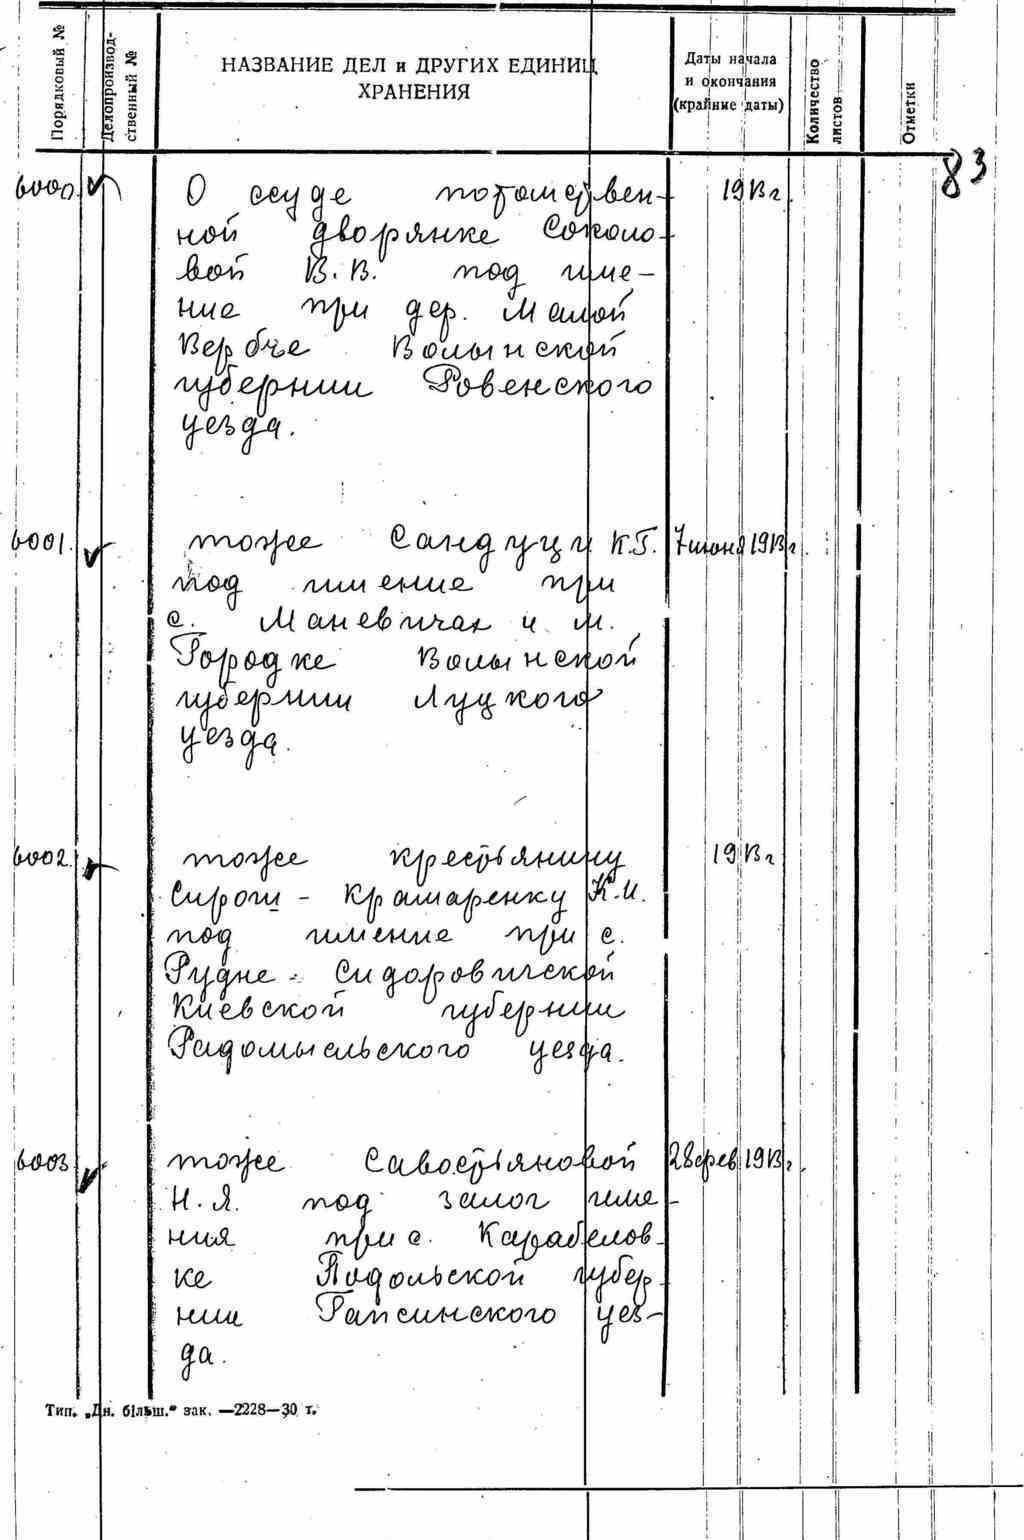 Порядковый №
Делопроизвод-
ственный №
НАЗВАНИЕ ДЕЛ и ДРУГИХ ЕДИНИЦ
ХРАНЕНИЯ
Даты начала
и окончания
(крайние даты)
Количество
листов
Отметки
83
6000. О ссуде потомствен- 1913 г.
ной дворянке Соколо-
вой В. В. под име-
ние при дер. Малой
Вербче Волынской
губернии Ровенского
уезда.
6001. тоже Сандуци К.Г. 7 июня 1913 г.
под имение при
с. Маневичах и м.
Городке Волынской
губернии Луцкого
уезда.
6002. тоже крестьянину 1913 г
Сирош - Крамаренку К.И.
под имение при с.
Рудне - Сидоровичской
Киевской губернии
Радомысльского уезда.
6003 тоже Савостьяновой 28 фев 1913 г.
Н. Я. под залог име-
ния при с. Карабелов-
ке Подольской губер-
нии Гайсинского уез-
да.
Тип. „Дн. більш.“ зак. —2228—30 т.